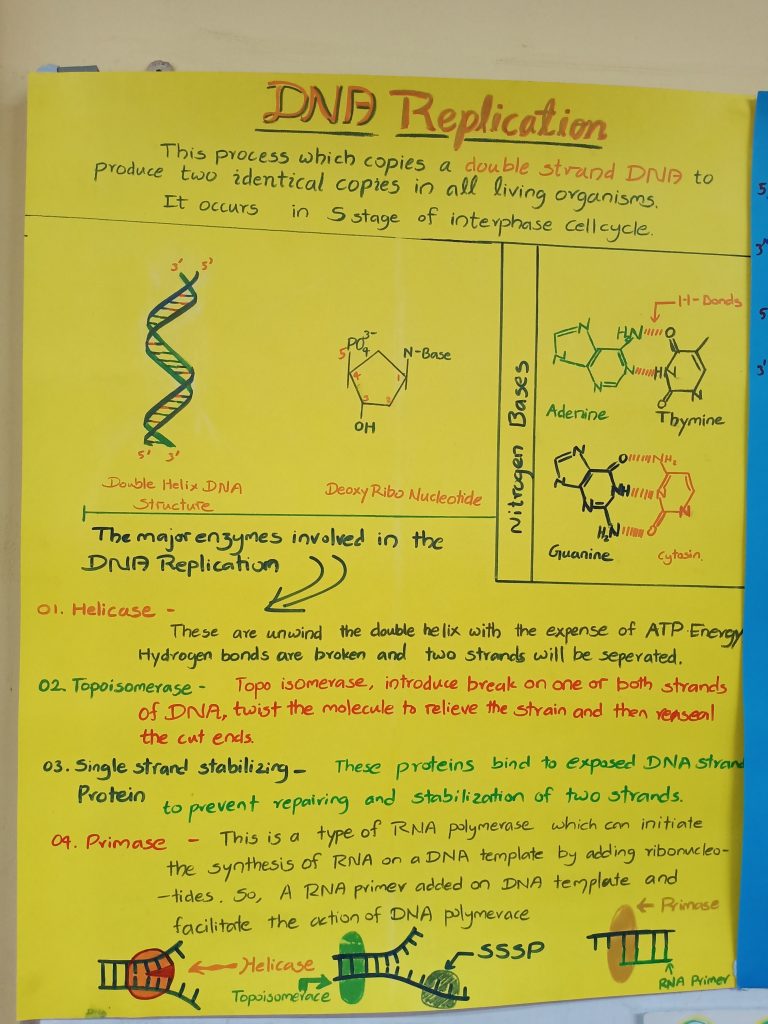 DNA Replication
This process which copies a double strand DNA to
produce two identical copies in all living organisms.
It occurs in S stage of interphase cell cycle.
3' 5'
5' 3'
Double Helix DNA
Structure
PO₄³⁻
N-Base
5
4
1
3
2
OH
Deoxy Ribo Nucleotide
Nitrogen Bases
H-Bonds
N
H₂N
O
N
N
HN
N
O
N
Adenine
Thymine
N
O
NH₂
N
NH
N
N
H₂N
O
N
Guanine
Cytosin.
The major enzymes involved in the
DNA Replication
01. Helicase -
These are unwind the double helix with the expense of ATP Energy
Hydrogen bonds are broken and two strands will be seperated.
02. Topoisomerase - Topo isomerase, introduce break on one or both strands
of DNA, twist the molecule to relieve the strain and then reaseal
the cut ends.
03. Single strand stabilizing - These proteins bind to exposed DNA strand
Protein to prevent repairing and stabilization of two strands.
04. Primase - This is a type of RNA polymerase which can initiate
the synthesis of RNA on a DNA template by adding ribonucleo-
-tides. So, A RNA primer added on DNA template and
facilitate the action of DNA polymerace
Helicase
Topoisomerace
SSSP
Primase
RNA Primer
5
3'
5
3'